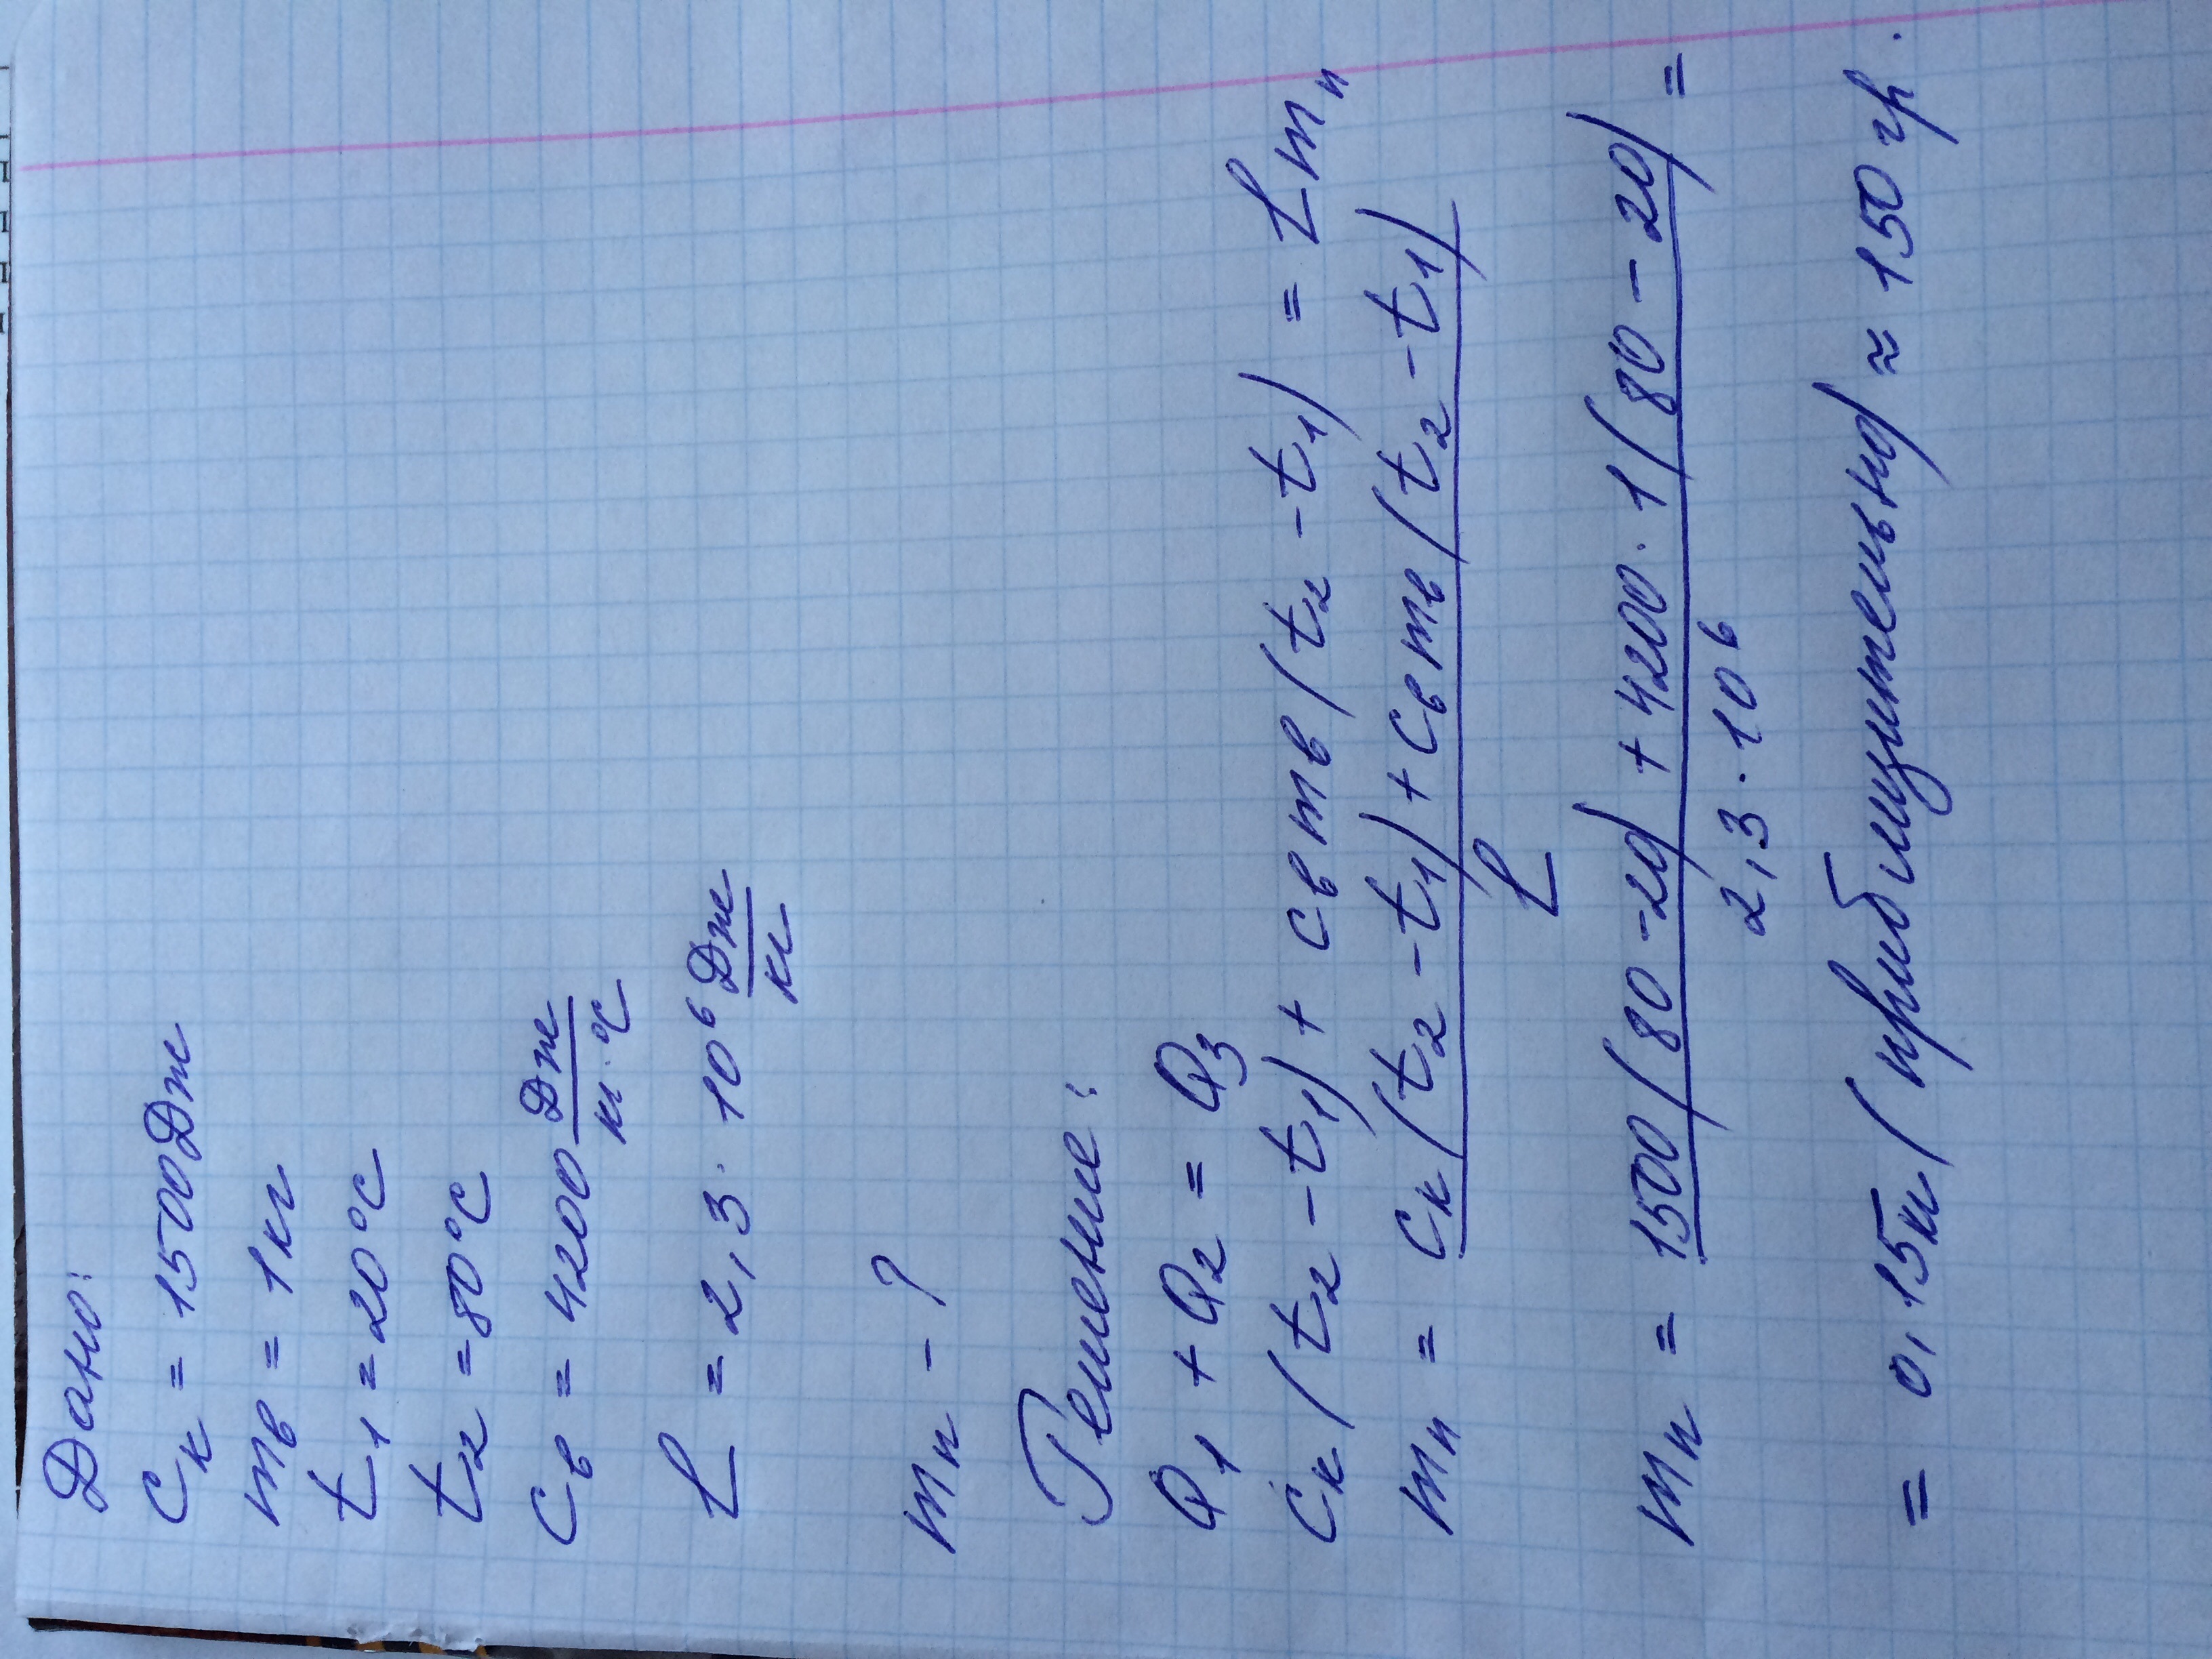 Дано:
Cк = 1500 Дж
mв = 1 кг
t₁ = 20°C
t₂ = 80°C
Cв = 4200 Дж/кг·°C
L = 2,3 · 10⁶ Дж/кг
mп - ?
Решение:
Q₁ + Q₂ = Q₃
Cк(t₂ - t₁) + Cвmв(t₂ - t₁) = Lmп
mп = Cк(t₂ - t₁) + Cвmв(t₂ - t₁) / L
mп = 1500(80 - 20) + 4200 · 1(80 - 20) / 2,3 · 10⁶ =
= 0,15кг (приблизительно) ≈ 150 гр.